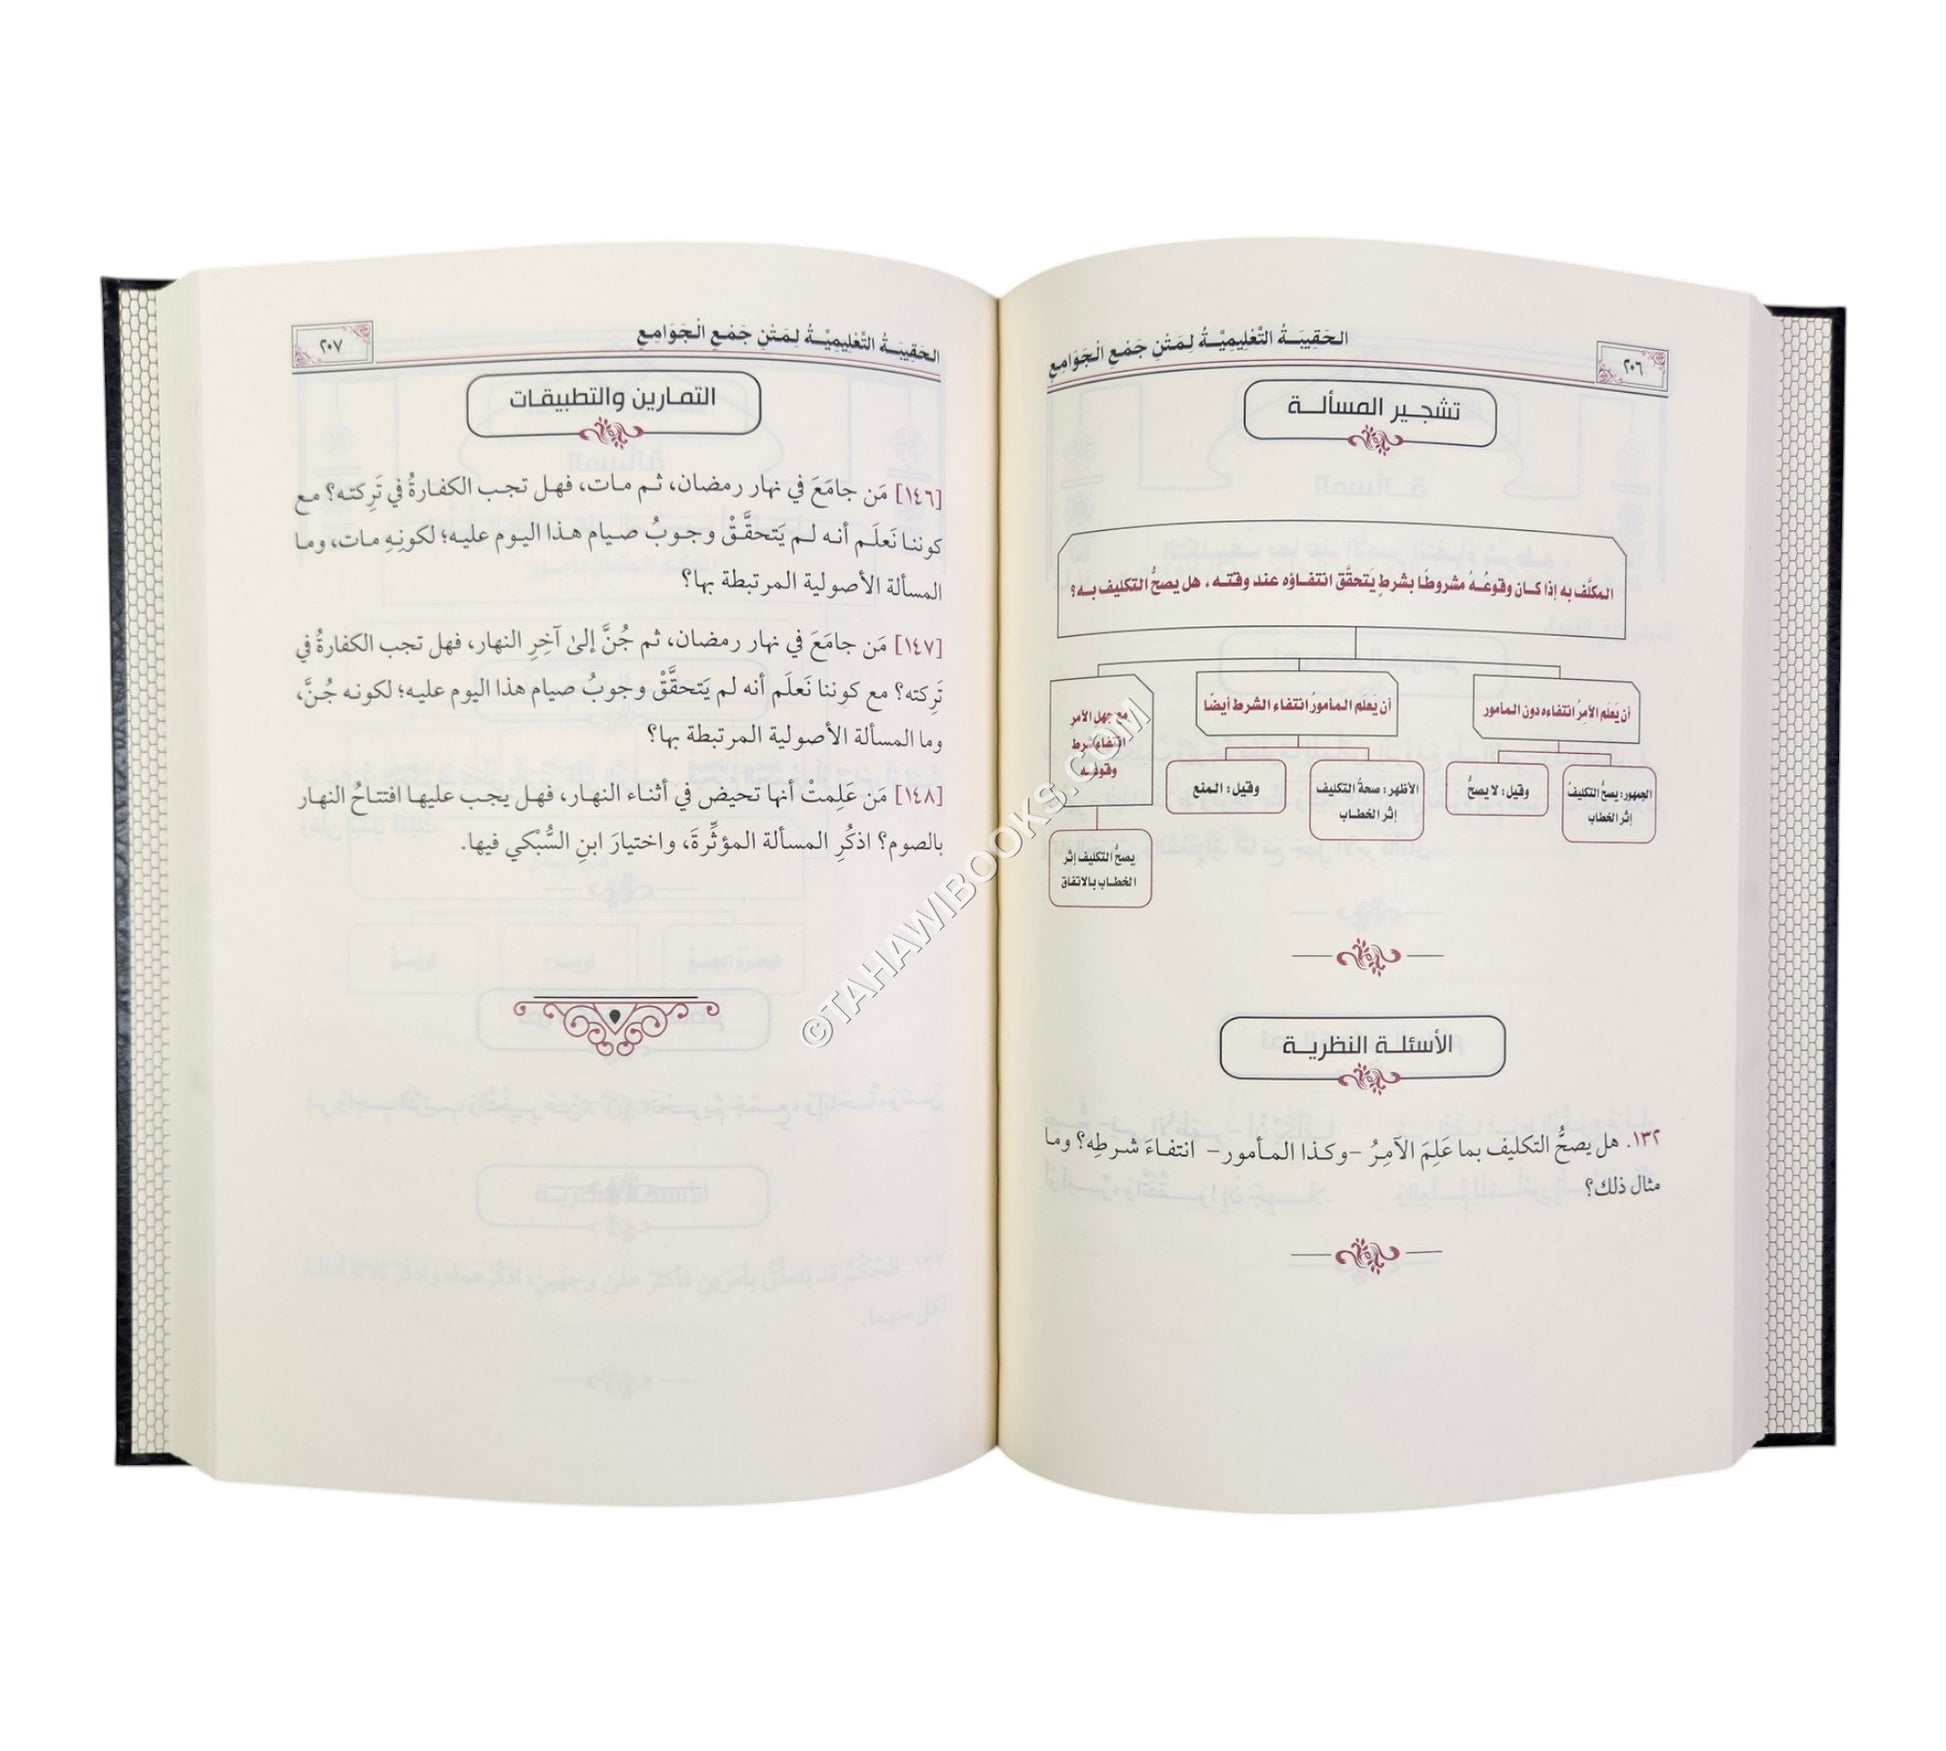 الحَقِيبَةُ التَّعْلِيمِيَّةُ لِمَتْنِ جَمْعِ الْجَوَامِعِ
٢٠٦
تشجير المسألة
المكلَّف به إذا كان وقوعُهُ مشروطًا بشرطٍ يَتحقَّق انتفاؤه عند وقته، هل يصحُّ التكليف به؟
أن يَعلَم الآمِرُ انتفاءه دون المأمور
أن يَعلَم المأمورُ انتفاء الشرط أيضًا
مع جهل الآمر
انتفاء شرط
وقوعه
الجمهور: يصحُّ التكليفُ
إثر الخطاب
وقيل: لا يصحُّ
الأظهر: صحةُ التكليف
إثر الخطاب
وقيل: المنع
يصحُّ التكليف إثر
الخطاب بالاتفاق
الأسئلة النظرية
١٣٢. هل يصحُّ التكليف بما عَلِمَ الآمِرُ -وكذا المأمور- انتفاءَ شرطِه؟ وما
مثال ذلك؟
الحَقِيبَةُ التَّعْلِيمِيَّةُ لِمَتْنِ جَمْعِ الْجَوَامِعِ
٢٠٧
التمارين والتطبيقات
[١٤٦] مَن جامَعَ في نهار رمضان، ثم مات، فهل تجب الكفارةُ في تَرِكته؟ مع
كوننا نَعلَم أنه لم يَتحقَّقْ وجوبُ صيام هذا اليوم عليه؛ لكونِهِ مات، وما
المسألة الأصولية المرتبطة بها؟
[١٤٧] مَن جامَعَ في نهار رمضان، ثم جُنَّ إلىٰ آخِرِ النهار، فهل تجب الكفارةُ في
تَرِكته؟ مع كوننا نَعلَم أنه لم يَتحقَّقْ وجوبُ صيام هذا اليوم عليه؛ لكونه جُنَّ،
وما المسألة الأصولية المرتبطة بها؟
[١٤٨] مَن عَلِمتْ أنها تحيض في أثناء النهار، فهل يجب عليها افتتاحُ النهار
بالصوم؟ اذكُرِ المسألة المؤثِّرةَ، واختيارَ ابنِ السُّبْكي فيها.
©TAHAWIBOOKS.COM